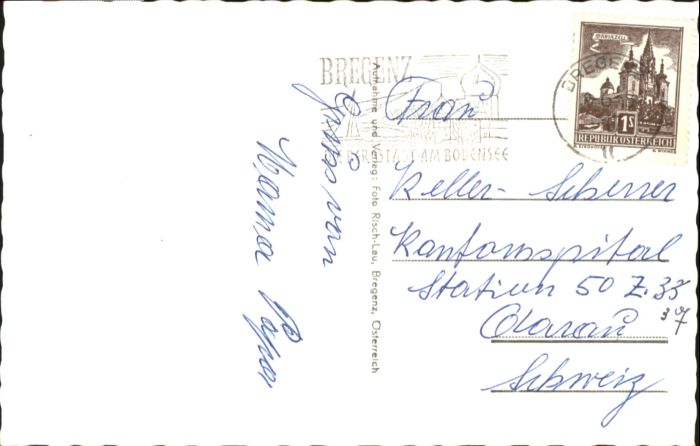 Gruss von
Mama Papa
Aufnahme und Verlag: Foto Risch-Lau, Bregenz, Österreich
BREGENZ
STADT AM BODENSEE
BREGENZ
MARIAZELL
1S
REPUBLIK ÖSTERREICH
Frau
Keller-Scherrer
Kantonsspital
Station 50 Z.33
37
Aarau
Schweiz